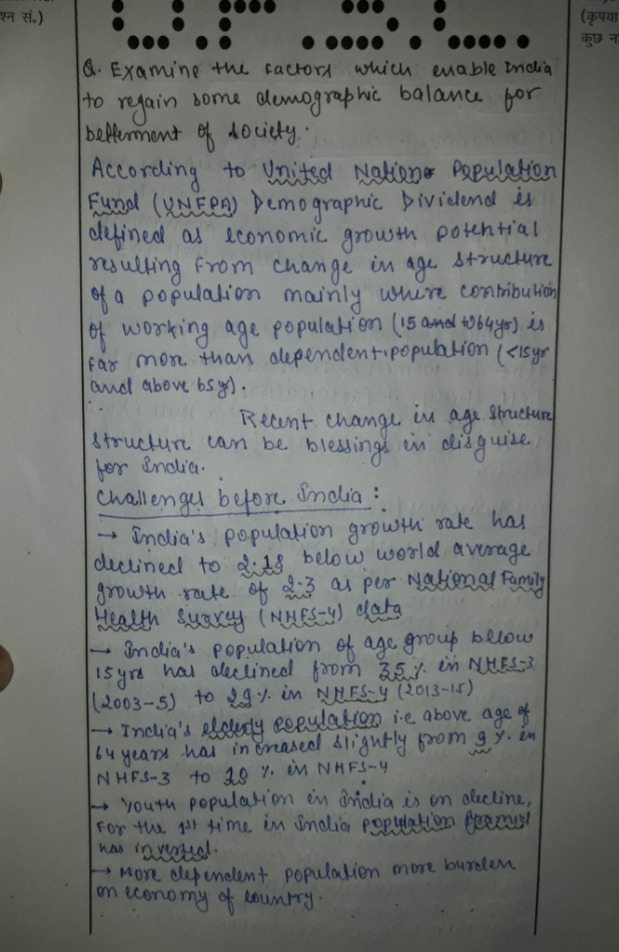 श्न सं.)
(कृपया
कुछ न
Q. Examine the factors which enable India
to regain some demographic balance for
betterment of society.
According to United Nations Population
Fund (UNFPA) Demographic Dividend is
defined as economic growth potential
resulting from change in age structure
of a population mainly where contribution
of working age population (15 and to 64yr) is
far more than dependent population (<15yr
and above 65yr).
Recent change in age structure
structure can be blessings in disguise
for India.
Challenges before India:
→ India's population growth rate has
declined to 2.18 below world average
growth rate of 2.3 as per National Family
Health Survey (NHFS-4) data
→ India's population of age group below
15yrs has declined from 35% in NHFS-3
(2003-5) to 29% in NHFS-4 (2013-15)
→ India's elderly population i.e above age of
64 years has increased slightly from 9 %. in
NHFS-3 to 10 %. in NHFS-4
→ Youth population in India is on decline,
for the 1st time in India population
has inverted.
→ More dependent population more burden
on economy of country.